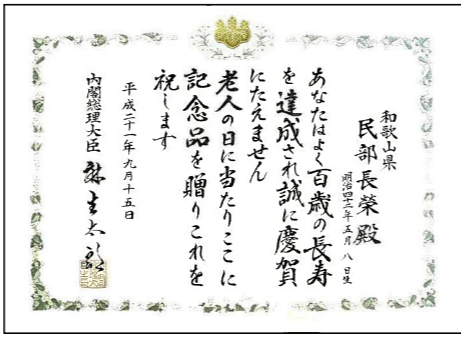 和歌山県
民部長榮殿
明治四十三年五月八日生
あなたはよく百歳の長寿
を達成され誠に慶賀
にたえません
老人の日に当たりここに
記念品を贈りこれを
祝します
平成二十一年九月十五日
内閣総理大臣 麻生太郎